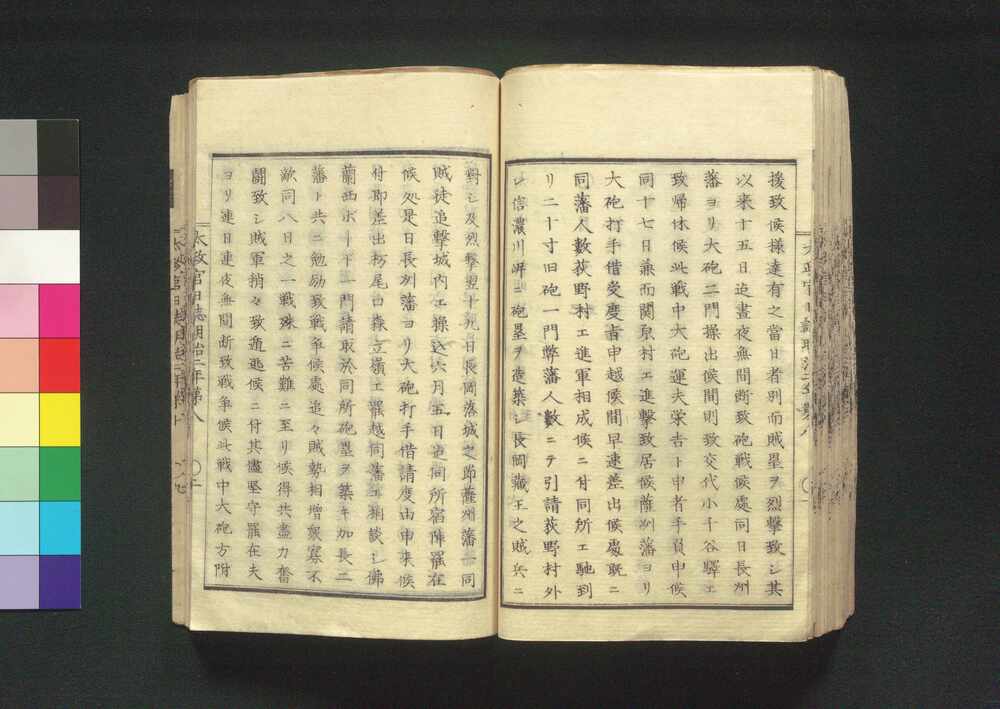 援致候様達有之當日者別而賊塁ヲ烈撃致シ其
以来十五日迠晝夜無間断致砲戦候處同日長州
藩ヨリ大砲二門操出候間則致交代小千谷驛エ
致帰休候此戦中大砲運夫栄吉ト申者手負申候
同十七日兼而関原村エ進撃致居候薩州藩ヨリ
大砲打手借受度旨申越候間早速差出候處既ニ
同藩人數荻野村エ進軍相成候ニ付同所エ馳到
リ二十寸旧砲一門弊藩人數ニテ引請荻野村外
レ信濃川岸ニ砲塁ヲ造築シ長岡藏王之賊兵ニ
對シ及烈撃翌十九日長岡落城之節薩州藩一同
賊徒追撃城内エ操込六月五日迠同所宿陣罷在
候処是日長州藩ヨリ大砲打手借請度由申来候
付即差出栃尾口森立嶺エ罷越同藩エ相談シ佛
蘭西ボート下一門請取於同所砲塁ヲ築キ加長二
藩ト共ニ勉励致戦争候處追々賊勢相増衆寡不
敵同八日之一戦殊ニ苦難ニ至リ候得共盡力奮
闘致シ賊軍稍々致遁逃候ニ付其儘堅守罷在夫
ヨリ連日連夜無間断致戦争候此戦中大砲方附
太政官日誌明治二年第八